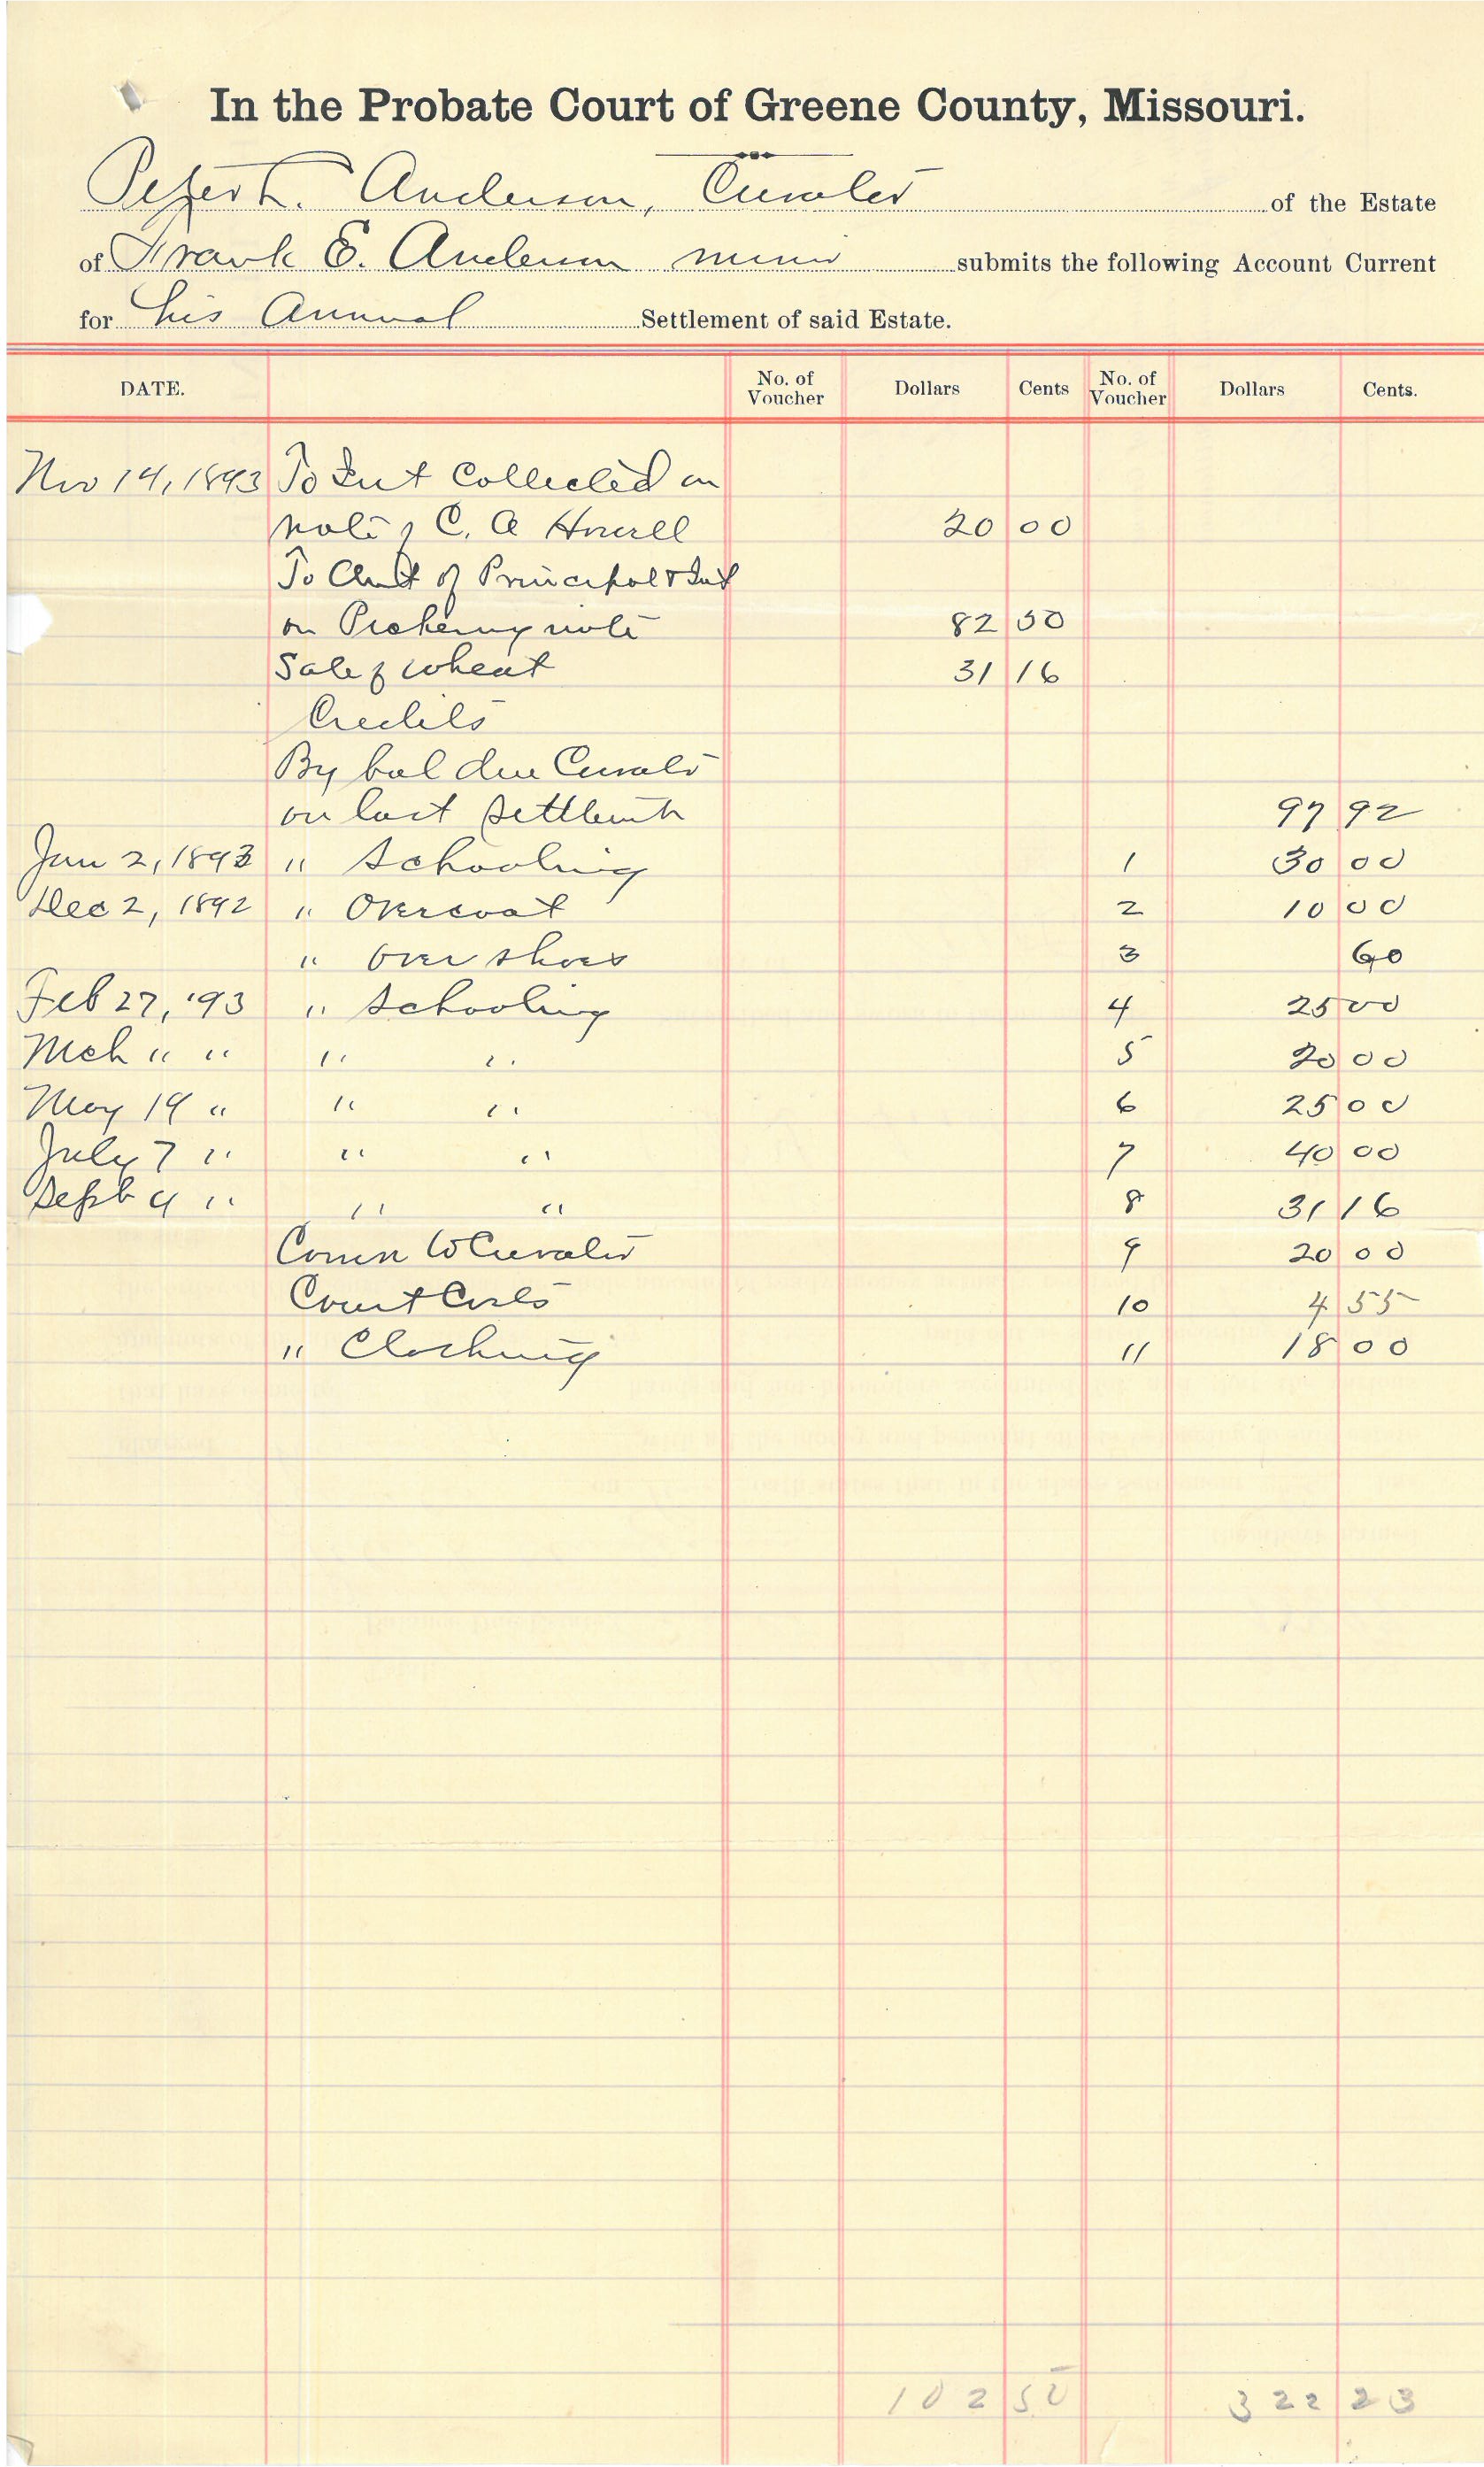 In the Probate Court of Greene County, Missouri.
Peter L. Anderson, Curator of the Estate
of Frank E. Anderson minor submits the following Account Current
for his Annual Settlement of said Estate.
DATE. No. of Voucher Dollars Cents No. of Voucher Dollars Cents.
Nov 14, 1893 To Int Collected on
note of C. A Howell 20 00
To Amt of Principal & Int
on Pickering note 82 50
Sale of wheat 31 16
Credits
By bal due Curator
on last settlemt 97 92
Jan 2, 1893 " Schooling 1 30 00
Dec 2, 1892 " Overcoat 2 10 00
" over shoes 3 60
Feb 27, '93 " Schooling 4 25 00
Mch " " " " 5 20 00
May 19 " " " 6 25 00
July 7 " " " 7 40 00
Sept 9 " " " 8 31 16
Comn to Curator 9 20 00
Court Costs 10 4 55
" Clothing 11 18 00
102 50 322 23